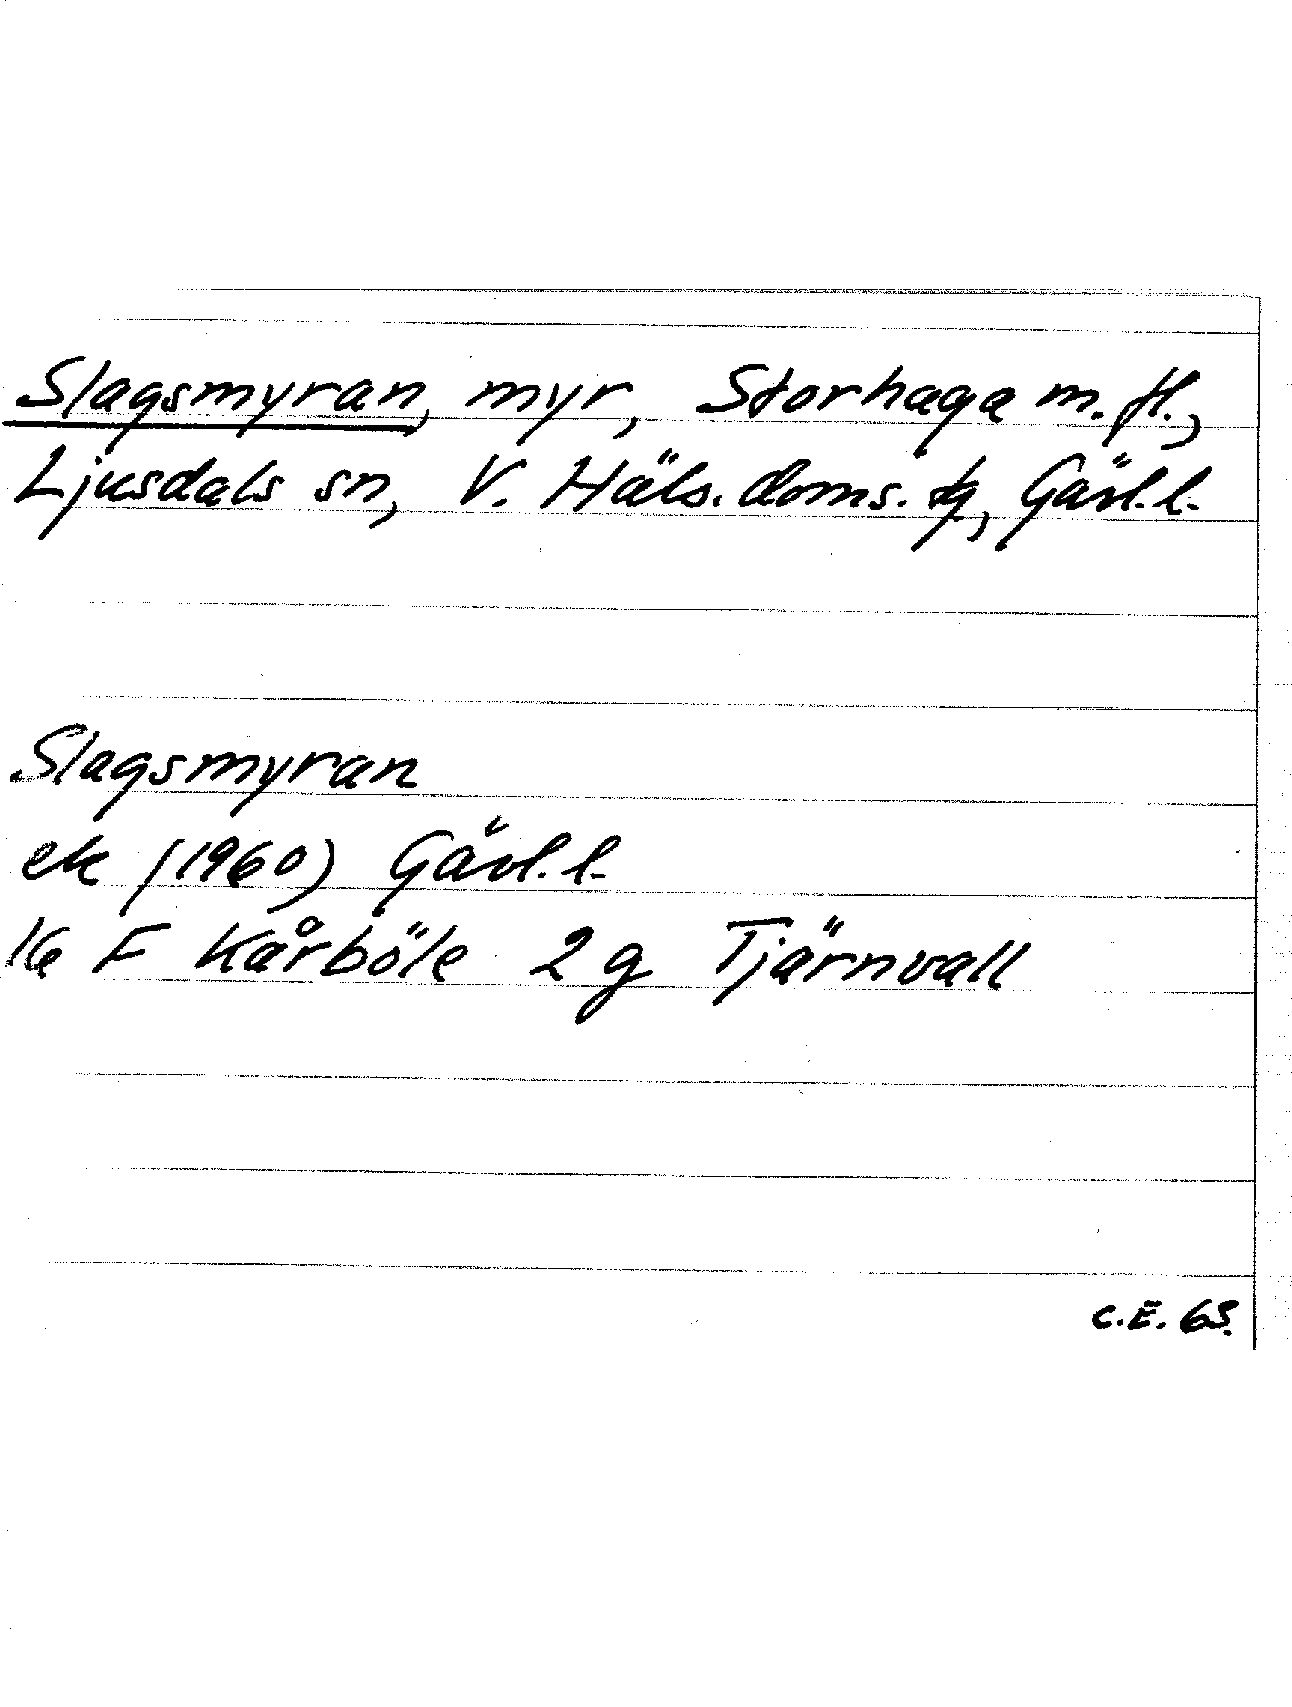 Slagsmyran, myr, Storhaga m. fl.,
Ljusdals sn, V. Häls. doms. tg, Gävl. l.
Slagsmyran
ek (1960) Gävl. l.
16 F Kårböle 2 g Tjärnvall
C.E. 63.